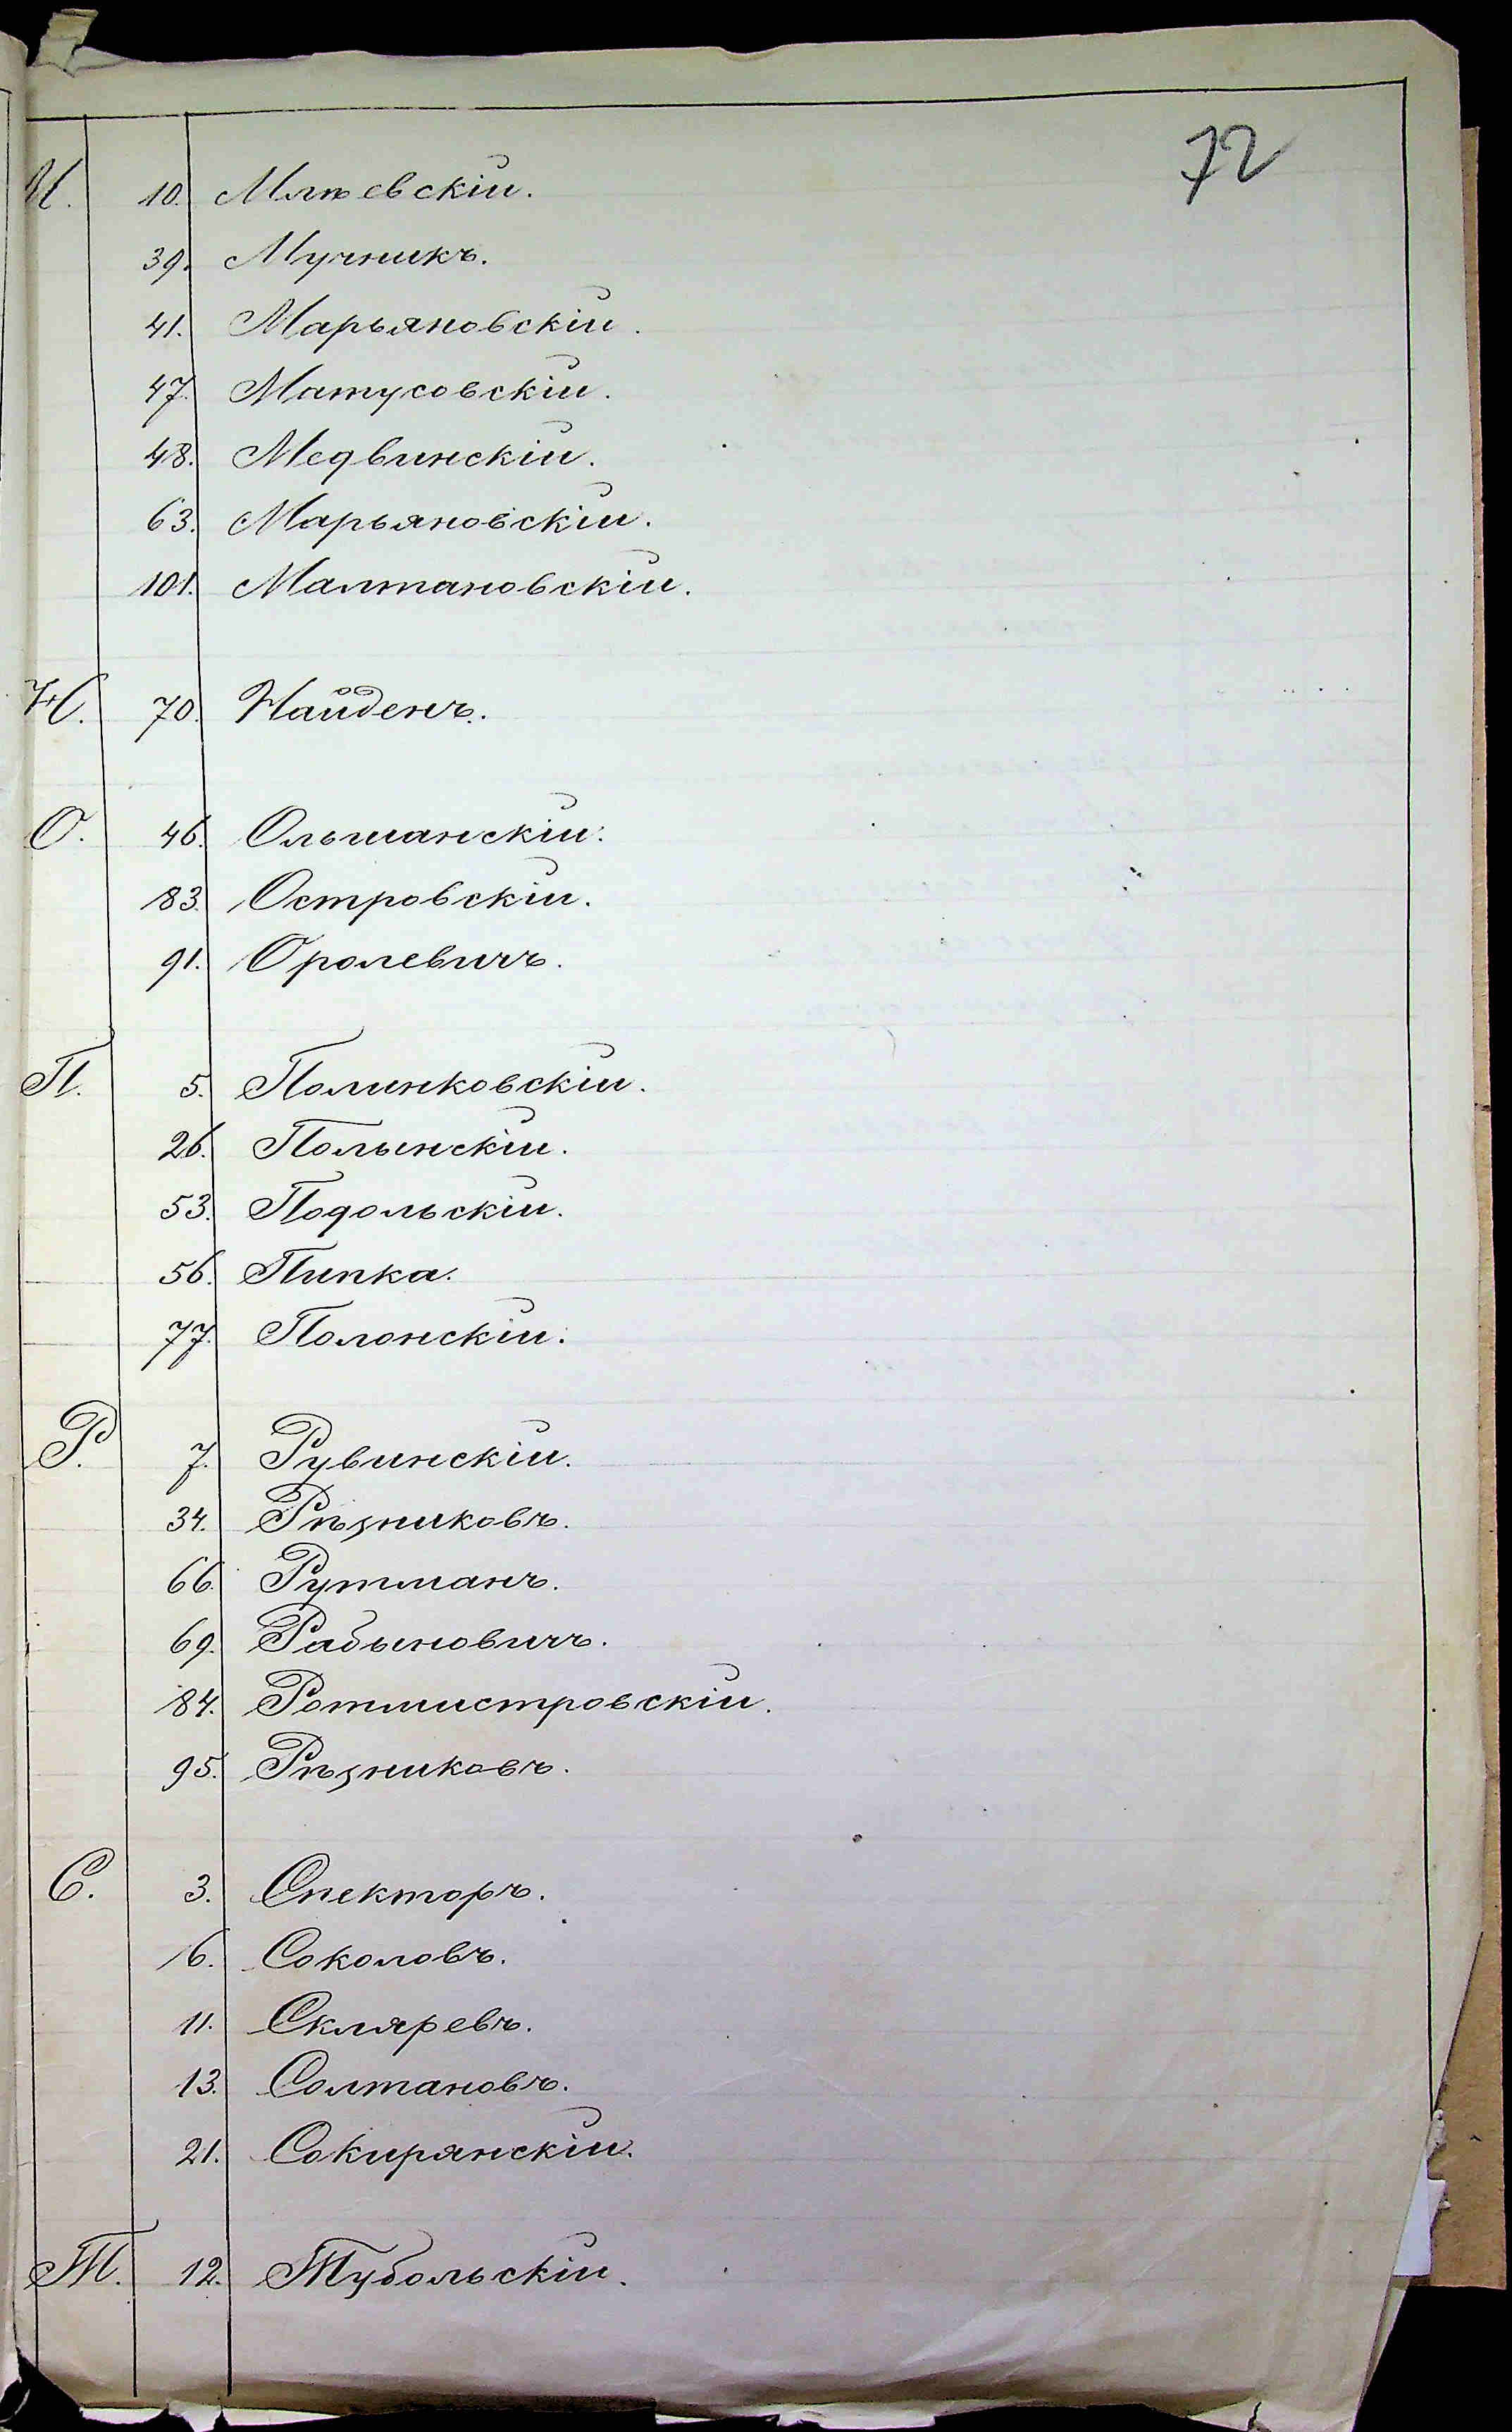 72
М. 10. Млѣевскій.
39. Мучникъ.
41. Марьяновскій.
47. Матусовскій.
48. Медвинскій.
63. Марьяновскій.
101. Малтановскій.
Н. 70. Найденъ.
О. 46. Ольшанскій.
83. Островскій.
91. Оролевичъ.
П. 5. Полинковскій.
26. Полынскій.
53. Подольскій.
56. Пипка.
77. Полонскій.
Р. 7. Рувинскій.
34. Рѣзниковъ.
66. Рутманъ.
69. Рабыновичъ.
84. Ротмистровскій.
95. Рѣзниковъ.
С. 3. Спекторъ.
6. Соколовъ.
11. Скляревъ.
13. Солтановъ.
21. Сокирянскій.
Т. 12. Тубольскій.